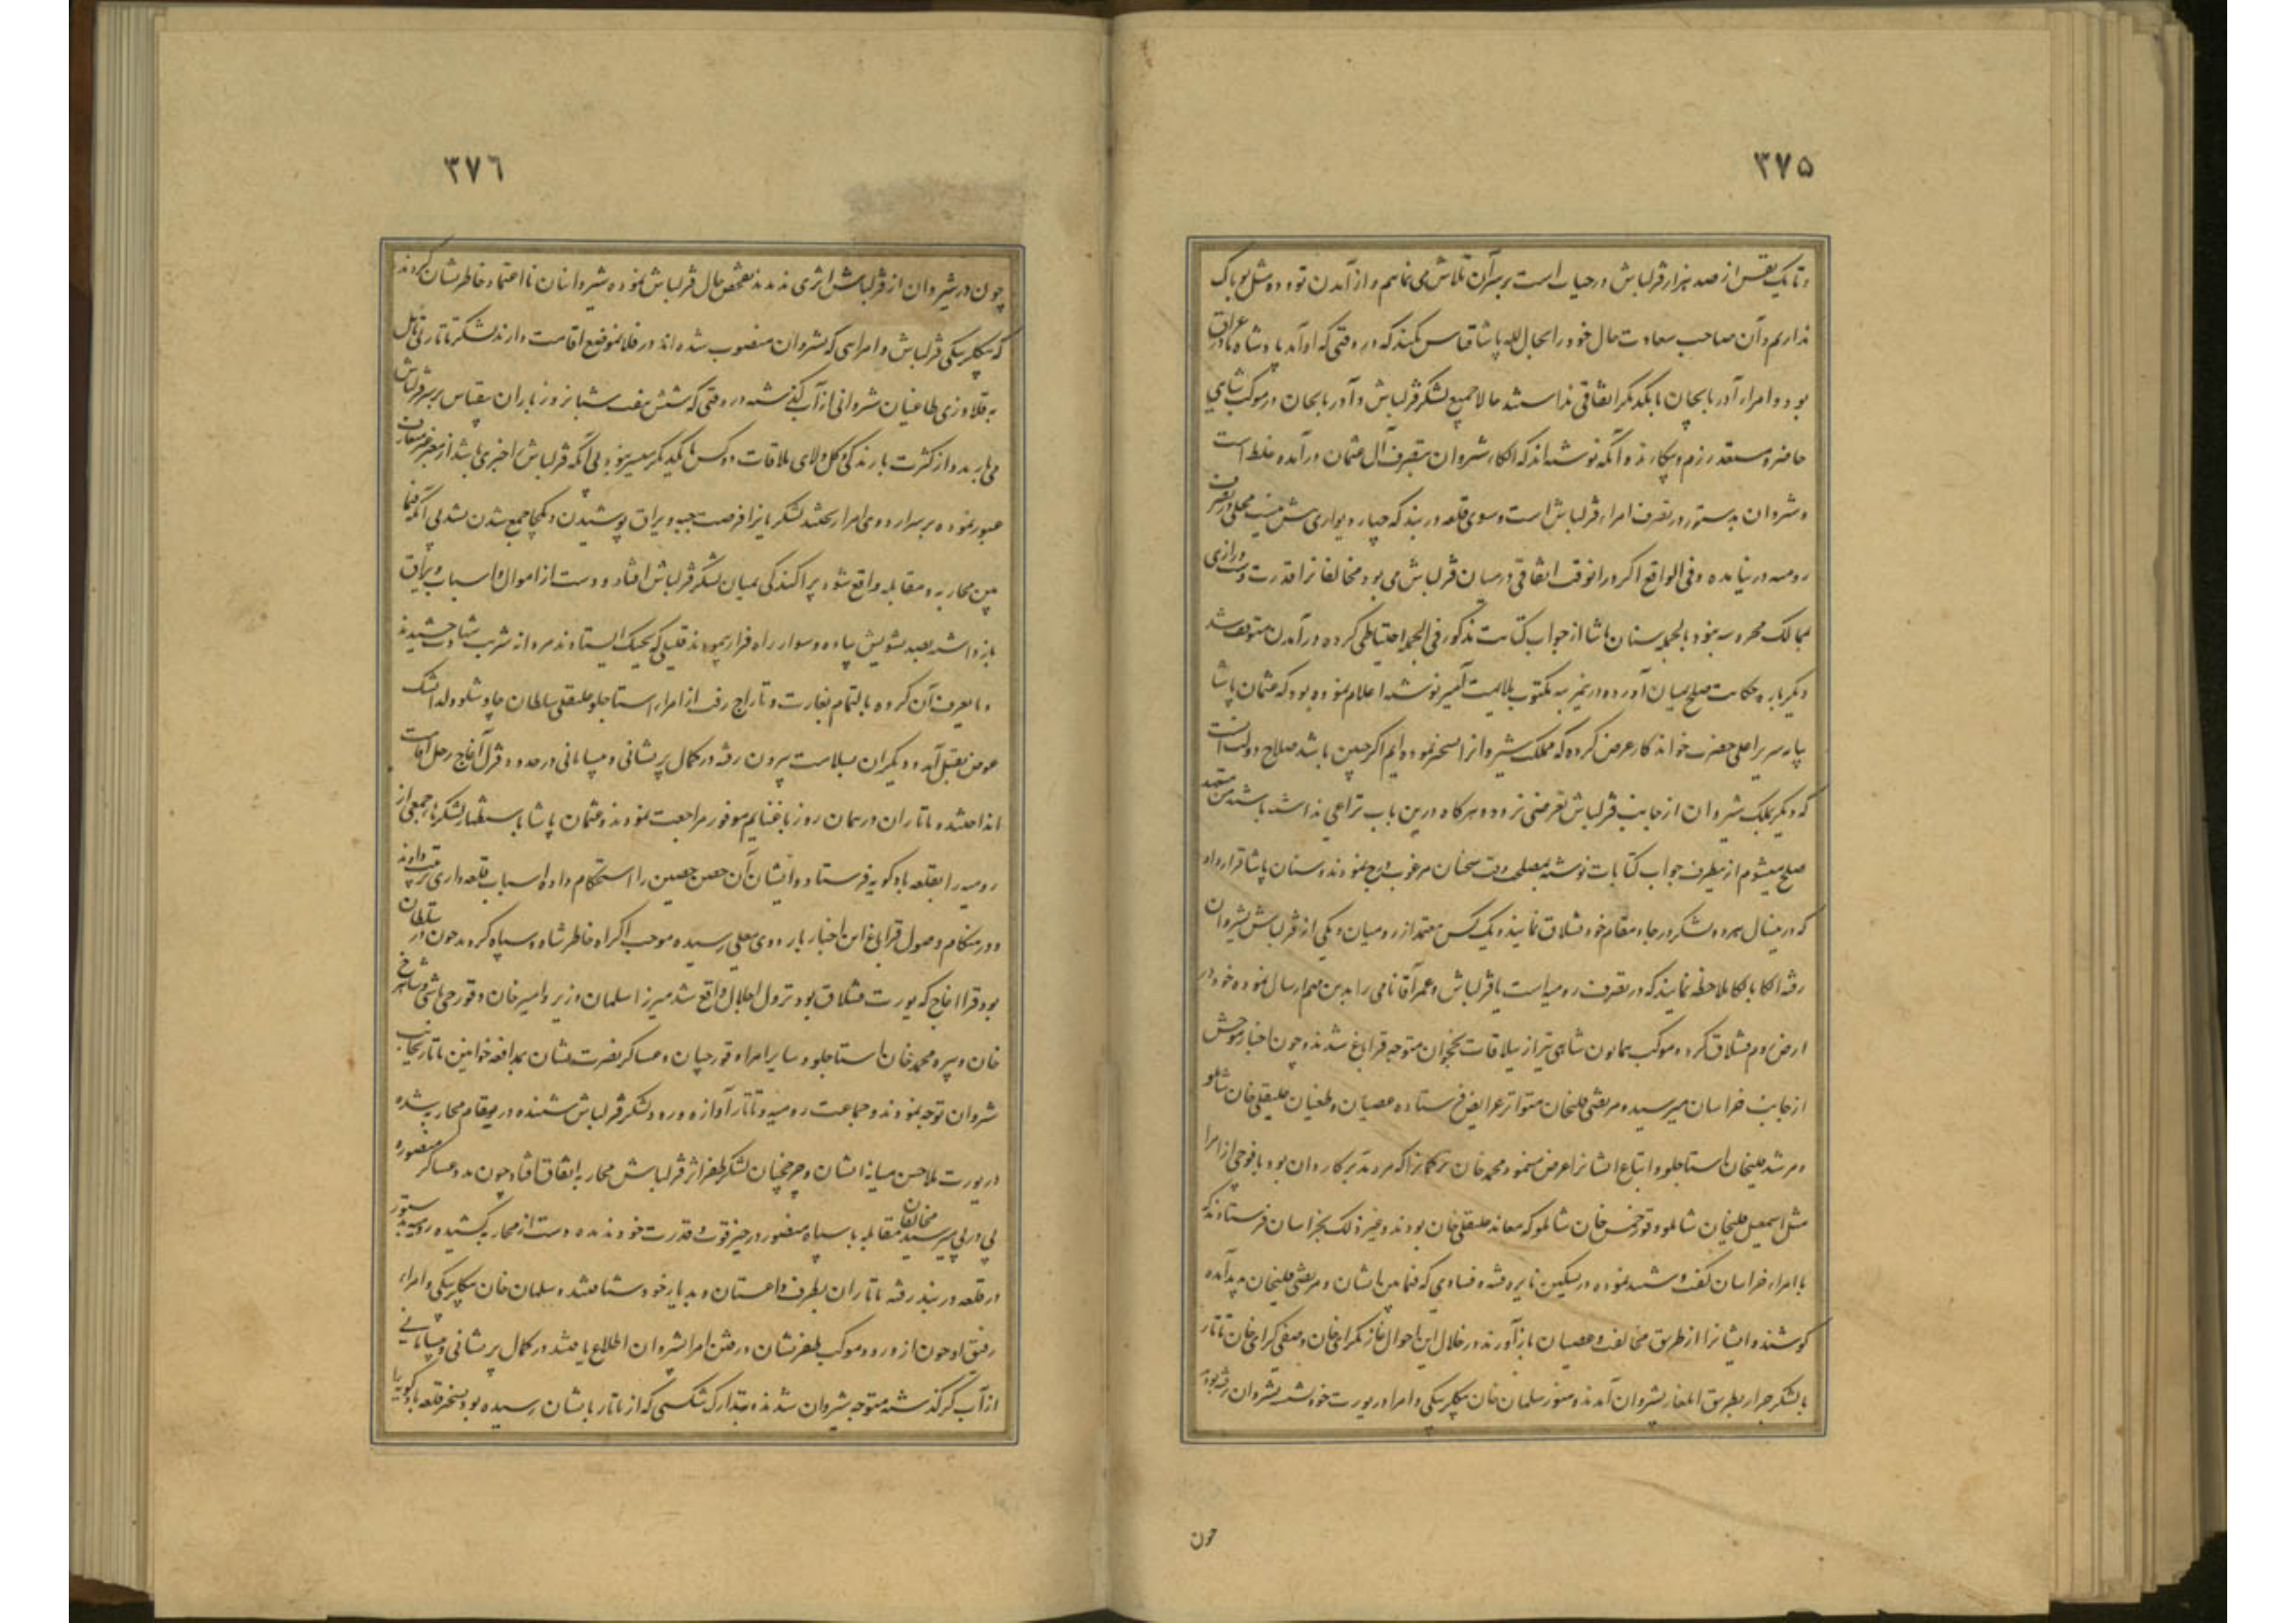 ۳۷۵
و تا یک نفس از صد هزار قزلباش در حیات است بر سر آن تلاش می نماییم و از آمدن تو و ده مثل تو باک
نداریم و آن صاحب سعادت حال خود را بحال لله پاشا قیاس نکند که در وقتی که او آمد پادشاه ما در عراق
بود و امراء آذربایجان با یکدیگر اتفاقی نداشتند حالا جمیع لشکر قزلباش و آذربایجان در موکب شاهی
حاضر و مستعد رزم و پیکارند و آنکه نوشته اند که الکاء شروان بتصرف آل عثمان درآمده غلط است
و شروان بدستور در تصرف امراء قزلباش است و سوی قلعه دربند که چهار دیواری بیش نیست محلی در تصرف
رومیه در نیامده و فی الواقع اگر در آنوقت اتفاقی در میان قزلباش می بود مخالفانرا قدرت دست درازی
بممالک محروسه نبود بالجمله سنان پاشا از جواب کتابت مذکور فی الجمله احتیاطی کرده در آمدن متوقف شد
دیگر باره حکایت صلح بمیان آورده درین مرتبه مکتوب ملایمت آمیز نوشته اعلام نموده بود که عثمان پاشا
بپایه سریر اعلی حضرت خواندکار عرض کرده که مملکت شیروانرا مسخر نموده ایم اگر چنین باشد صلاح دولت آنست
که دیگر بملک شروان از جانب قزلباش تعرضی نرود و هرگاه درین باب نزاعی نداشته باشند من متعهد
صلح میشوم ازینطرف جواب کتابات نوشته بمصلحت وقت سخنان مرغوب درج نمودند و سنان پاشا قرار داد
که درینسال هر دو لشکر در جا و مقام خود قشلاق نمایند و یک کس معتمد از رومیان و یکی از قزلباش بشیروان
رفته الکا بالکا ملاحظه نمایند که در تصرف رومیه است یا قزلباش و عمر آقا نامی را بدین مهم ارسال نموده خود در
ارض روم قشلاق کرد و موکب همایون شاهی نیز از ییلاقات نخجوان متوجه قراباغ شدند و چون اخبار موحش
از جانب خراسان میرسید و مرتضی قلیخان متواتر عرایض فرستاده عصیان و طغیان علیقلی خان شاملو
و مرشد قلیخان استاجلو و اتباع ایشانرا عرض مینمود محمد خان ترکمانرا که مرد مدبر کاردان بود با فوجی از امرا
مثل اسمعیل قلیخان شاملو و قورخمس خان شاملو که معاند علیقلی خان بودند و غیر ذلک بخراسان فرستادند که
با امراء خراسان گفت و شنید نموده در تسکین نایره فتنه و فسادی که فیما بین ایشان و مرتضی قلیخان پدید آمده
کوشند و ایشانرا از طریق مخالفت و عصیان بازآورند در خلال این احوال غازیگرای خان و صفی گرای خان تاتار
با لشکر جرار بطریق ایلغار بشیروان آمدند و هنوز سلمان خان بیگلربیگی و امرا در یورت خود بشروان نرفته بودند
چون
۳۷۶
چون در شیروان از قزلباش اثری ندیدند تفحص حال قزلباش نموده شیروانیان نااعتماد خاطرنشان کردند
که بیگلربیگی قزلباش و امرایی که بشروان منصوب شده اند در فلانموضع اقامت دارند لشکر تاتار بی تأمل
به قلاوزی طاغیان شروانی از آب گذشته در وقتی که شش هفت شبانروز باران بیقیاس بر سر قزلباش
می بارید و از کثرت بارندگی و گل و لای ملاقات دو کس با یکدیگر میسر نبود بی آنکه قزلباش را خبری باشد از معبر غیر متعارف
عبور نموده بر سر اردوی امرا ریختند لشکریانرا فرصت جبه و یراق پوشیدن و یکجا جمع شدن نشد بی آنکه فیما
بین محاربه و مقابله واقع شود پراکندگی بمیان لشکر قزلباش افتاد و دست از اموال و اسباب و یراق
بازداشته بصد تشویش پیاده و سوار راه فرار پیمودند قلیلی که بجنگ ایستادند مردانه شربت شهادت چشیدند
و مایعرف آن گروه بالتمام بغارت و تاراج رفت از امراء استاجلو علیقلی سلطان چاوشلو ولد اشک
عوض بقتل آمد و دیگران بسلامت بیرون رفته در کمال پریشانی و بیسامانی در حدود قزل آغاج رحل اقامت
انداختند و تاتاران در همان روز با غنایم موفور مراجعت نمودند و عثمان پاشا باستظهار لشکر تاتار جمعی از
رومیه را بقلعه بادکوبه فرستاد و ایشان آن حصن حصین را استحکام داده اسباب قلعه داری ترتیب دادند
و در هنگام وصول قراباغ این اخبار باردوی معلی رسیده موجب اکراه خاطر شاه و سپاه گردید چون در سلطان
بود قرا اغاج که یورت قشلاق بود نزول اجلال واقع شد میرزا سلمان وزیر و امیر خان و قورچی باشی و شاهرخ
خان و پیره محمد خان استاجلو و سایر امرا و قورچیان و عساکر نصرت نشان بمدافعه خوانین تاتار بجانب
شروان توجه نمودند و جماعت رومیه و تاتار آوازه ورود لشکر قزلباش شنیده در مقام محاربه شده
در یورت ملا حسن میانه ایشان و چرخچیان لشکر ظفر اثر قزلباش محاربه اتفاق افتاد چون مدد عساکر منصوره
پی در پی میرسید مخالفان مقابله با سپاه منصور در حیز قوت و قدرت خود ندیده دست از محاربه کشیده رومیه بدستور
در قلعه دربند رفته تاتاران بطرف داغستان و دیار خود شتافتند و سلمان خان بیگلربیگی و امراء
رفیق او چون از ورود موکب ظفر نشان و رفتن امرا بشروان اطلاع یافتند در کمال پریشانی و بیسامانی
از آب کر گذشته متوجه شروان شدند و بتدارک شکستی که از تاتار بایشان رسیده بود بتسخیر قلعه بادکوبه را